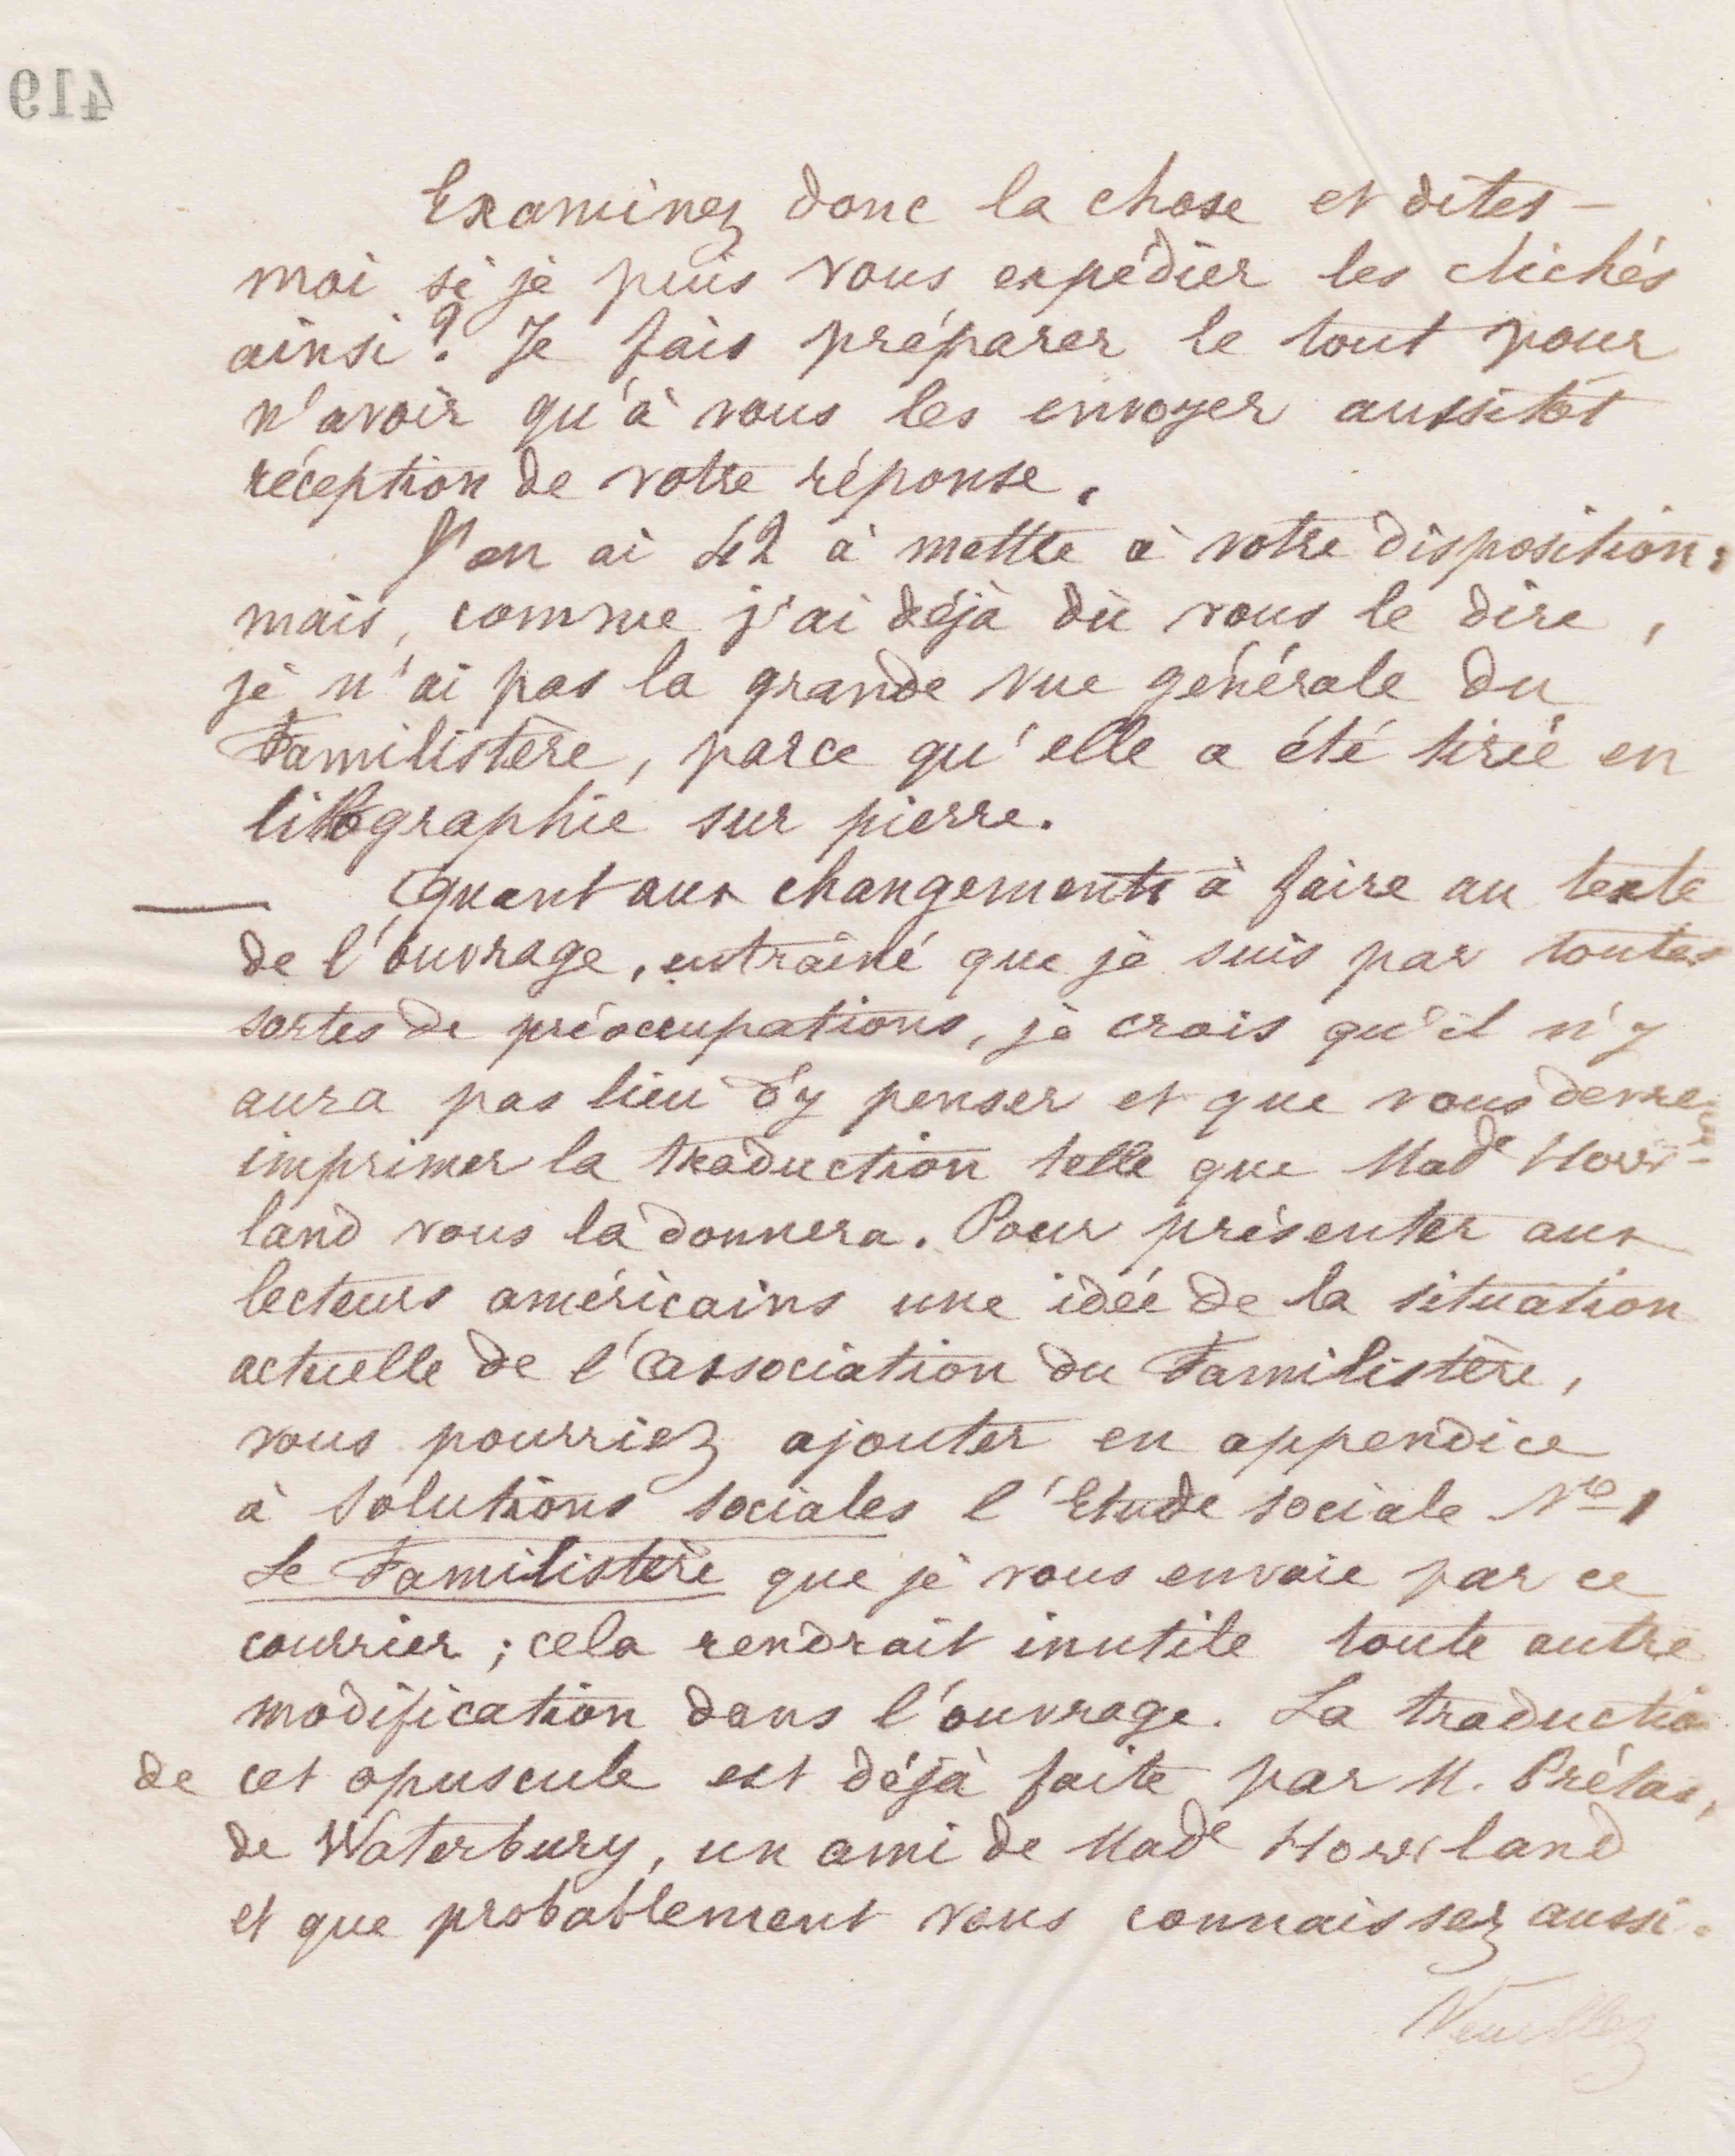 419
Examinez donc la chose et dites-
moi si je puis vous expédier les clichés
ainsi? Je fais préparer le tout pour
n'avoir qu'à vous les envoyer aussitôt
réception de votre réponse.
J'en ai 42 à mettre à votre disposition;
mais, comme j'ai déjà dû vous le dire,
je n'ai pas la grande vue générale du
Familistère, parce qu'elle a été tirée en
lithographie sur pierre.
Quant aux changements à faire au texte
de l'ouvrage, entraîné que je suis par toutes
sortes de préoccupations, je crois qu'il n'y
aura pas lieu d'y penser et que vous devrez
imprimer la traduction telle que Made How-
land vous la donnera. Pour présenter aux
lecteurs américains une idée de la situation
actuelle de l'association du Familistère,
vous pourriez ajouter en appendice
à Solutions sociales l'Etude sociale No 1
Le Familistère que je vous envoie par ce
courrier; cela rendrait inutile toute autre
modification dans l'ouvrage. La traduction
de cet opuscule est déjà faite par M.
de Waterbury, un ami de Made Howland
et que probablement vous connaissez aussi.
Veuillez